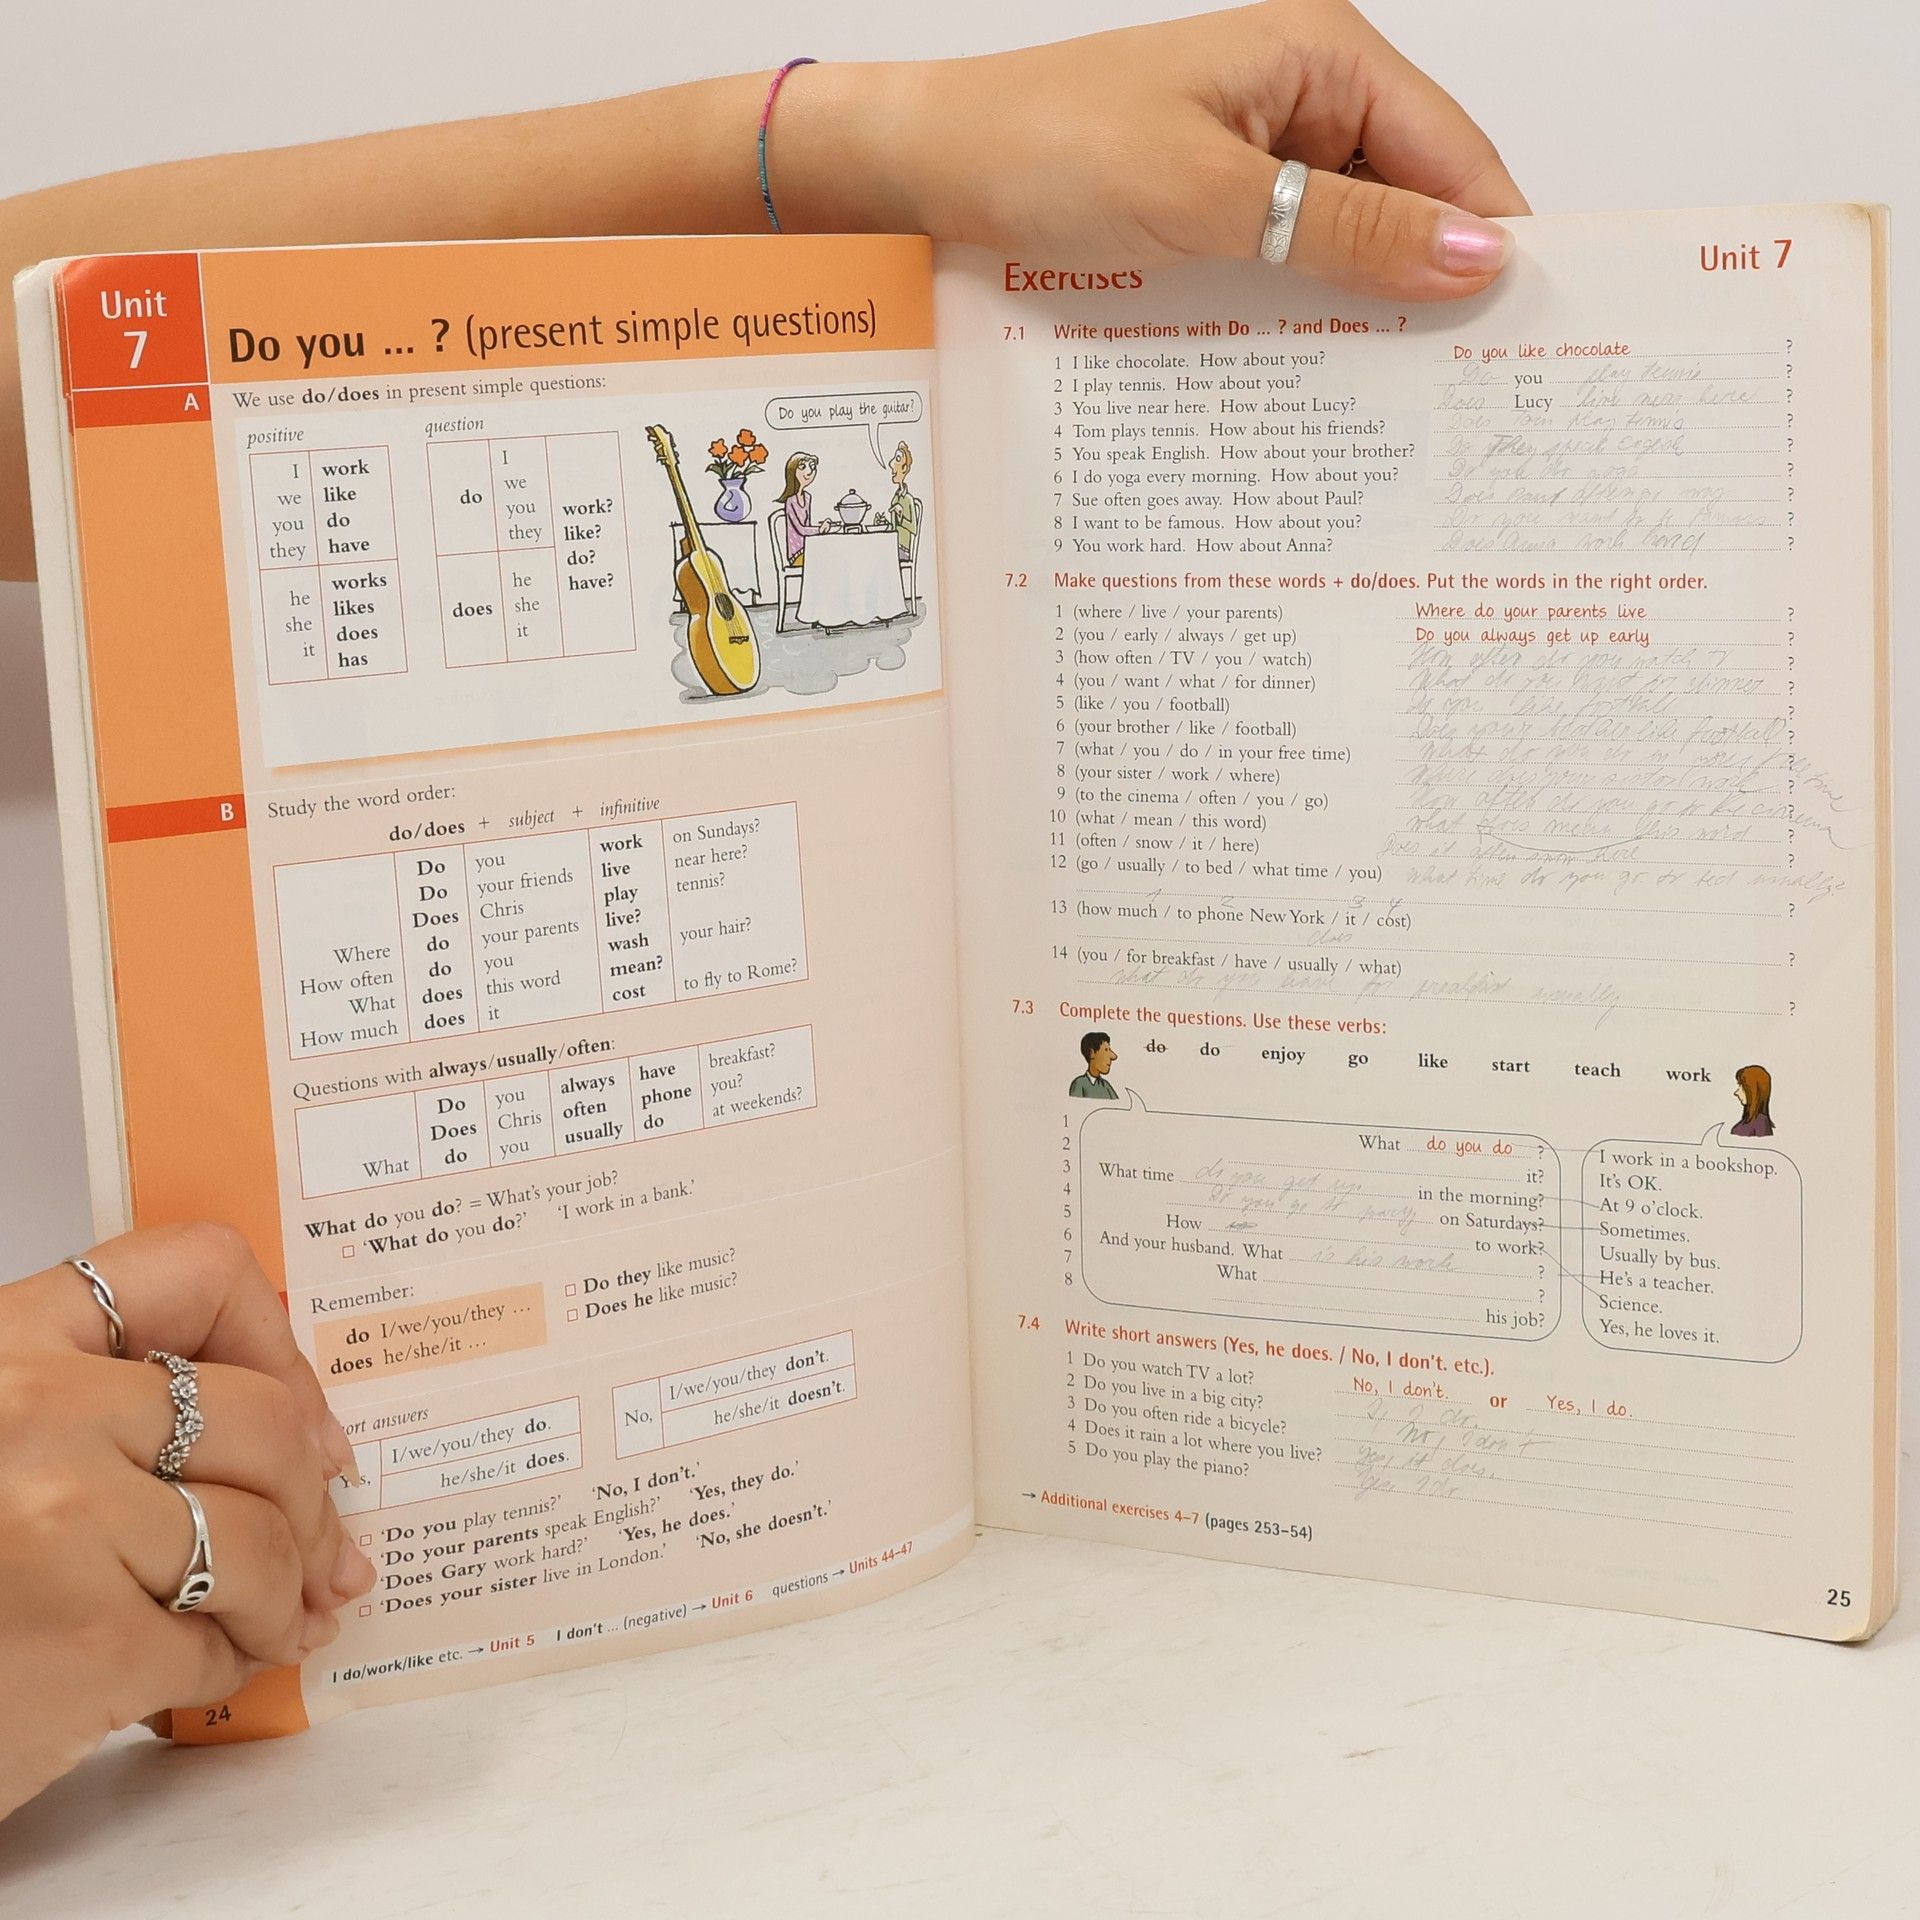 Unit
7
Do you ... ? (present simple questions)
A
We use do/does in present simple questions:
positive
I work
we like
you do
they have
he works
she likes
it does
has
question
do
I
we
you
they
does
he
she
it
work?
like?
do?
have?
Do you play the guitar?
B
Study the word order:
do/does + subject + infinitive
Do you work on Sundays?
Do your friends live near here?
Does Chris play tennis?
Where do your parents live?
How often do you wash your hair?
What does this word mean?
How much does it cost to fly to Rome?
Questions with always/usually/often:
Do you always have breakfast?
Does Chris often phone you?
What do you usually do at weekends?
What do you do? = What's your job?
□ 'What do you do?' 'I work in a bank.'
Remember:
do I/we/you/they ...
does he/she/it ...
□ Do they like music?
□ Does he like music?
ort answers
Yes,
I/we/you/they do.
he/she/it does.
No,
I/we/you/they don't.
he/she/it doesn't.
□ 'Do you play tennis?' 'No, I don't.'
'Do your parents speak English?' 'Yes, they do.'
'Does Gary work hard?' 'Yes, he does.'
□ 'Does your sister live in London.' 'No, she doesn't.'
I do/work/like etc. → Unit 5 I don't ... (negative) → Unit 6 questions → Units 44–47
24
Exercises
Unit 7
7.1 Write questions with Do ... ? and Does ... ?
1 I like chocolate. How about you? Do you like chocolate ?
2 I play tennis. How about you? Do you play tennis ?
3 You live near here. How about Lucy? Does Lucy live near here ?
4 Tom plays tennis. How about his friends? Does Tom play tennis ?
5 You speak English. How about your brother? Do They speak ?
6 I do yoga every morning. How about you? Do you do yoga ?
7 Sue often goes away. How about Paul? Does ?
8 I want to be famous. How about you? ?
9 You work hard. How about Anna? Does Anna work ?
7.2 Make questions from these words + do/does. Put the words in the right order.
1 (where / live / your parents) Where do your parents live ?
2 (you / early / always / get up) Do you always get up early ?
3 (how often / TV / you / watch) How often do you watch TV ?
4 (you / want / what / for dinner) What do you want for dinner ?
5 (like / you / football) Do you like football ?
6 (your brother / like / football) Does your brother like football ?
7 (what / you / do / in your free time) What do you do in ?
8 (your sister / work / where) where does your work ?
9 (to the cinema / often / you / go) How often do you go to the cinema ?
10 (what / mean / this word) what does mean this word ?
11 (often / snow / it / here) Does it often snow here ?
12 (go / usually / to bed / what time / you) What time do you go to bed usually?
1 2 3 4
13 (how much / to phone New York / it / cost) ?
does
14 (you / for breakfast / have / usually / what) ?
what do you have for usually ?
7.3 Complete the questions. Use these verbs:
do do enjoy go like start teach work
1 What do you do ?
2 it?
3 What time do you get up in the morning?
4 Do you go to party on Saturdays?
5 How to work?
6 And your husband. What is his work ?
7 What ?
8 his job?
I work in a bookshop.
It's OK.
At 9 o'clock.
Sometimes.
Usually by bus.
He's a teacher.
Science.
Yes, he loves it.
7.4 Write short answers (Yes, he does. / No, I don't. etc.).
1 Do you watch TV a lot? No, I don't. or Yes, I do.
2 Do you live in a big city? I do.
3 Do you often ride a bicycle? No, I don't
4 Does it rain a lot where you live? Yes, it does.
5 Do you play the piano? Yes I do
→ Additional exercises 4–7 (pages 253–54)
25